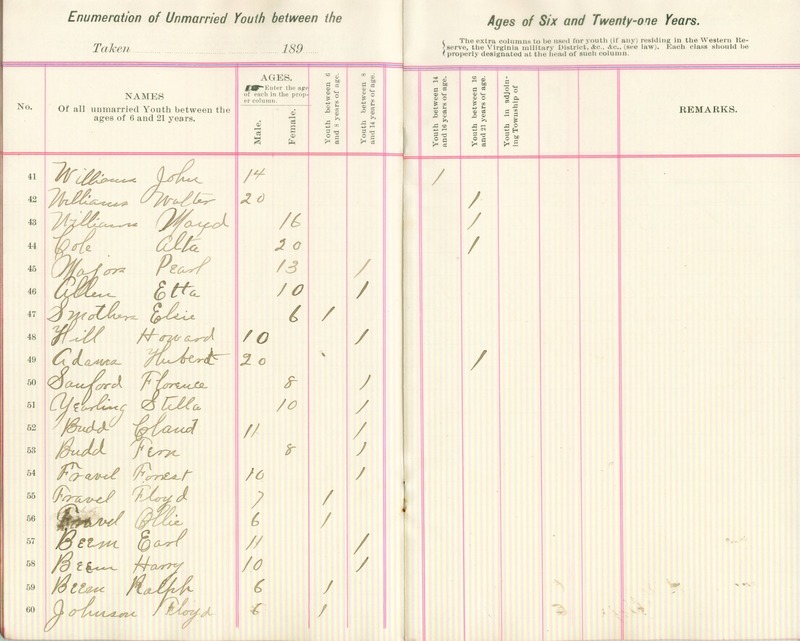 Enumeration of Unmarried Youth between the Ages of Six and Twenty-one Years.
Taken 189
The extra columns to be used for youth (if any) residing in the Western Re-
serve, the Virginia military District, &c., &c., (see law). Each class should be
properly designated at the head of such column.
No.
NAMES
Of all unmarried Youth between the
ages of 6 and 21 years.
AGES.
Enter the age
of each in the prop-
er column.
Male.
Female.
Youth between 6
and 8 years of age.
Youth between 8
and 14 years of age.
Youth between 14
and 16 years of age.
Youth between 16
and 21 years of age.
Youth in adjoin-
ing Township of
REMARKS.
41 Williams John 14 /
42 Williams Walter 20 /
43 Williams Mayd 16 /
44 Cole Alta 20 /
45 Majors Pearl 13 /
46 Allen Etta 10 /
47 Smothers Elsie 6 /
48 Hill Howard 10 /
49 Adams Hubert 20 /
50 Sanford Florence 8 /
51 Yearling Stella 10 /
52 Budd Claud 11 /
53 Budd Fern 8 /
54 Fravel Forest 10 /
55 Fravel Floyd 7 /
56 Fravel Ollie 6 /
57 Beem Earl 11 /
58 Beem Harry 10 /
59 Beem Ralph 6 /
60 Johnson Floyd 6 /